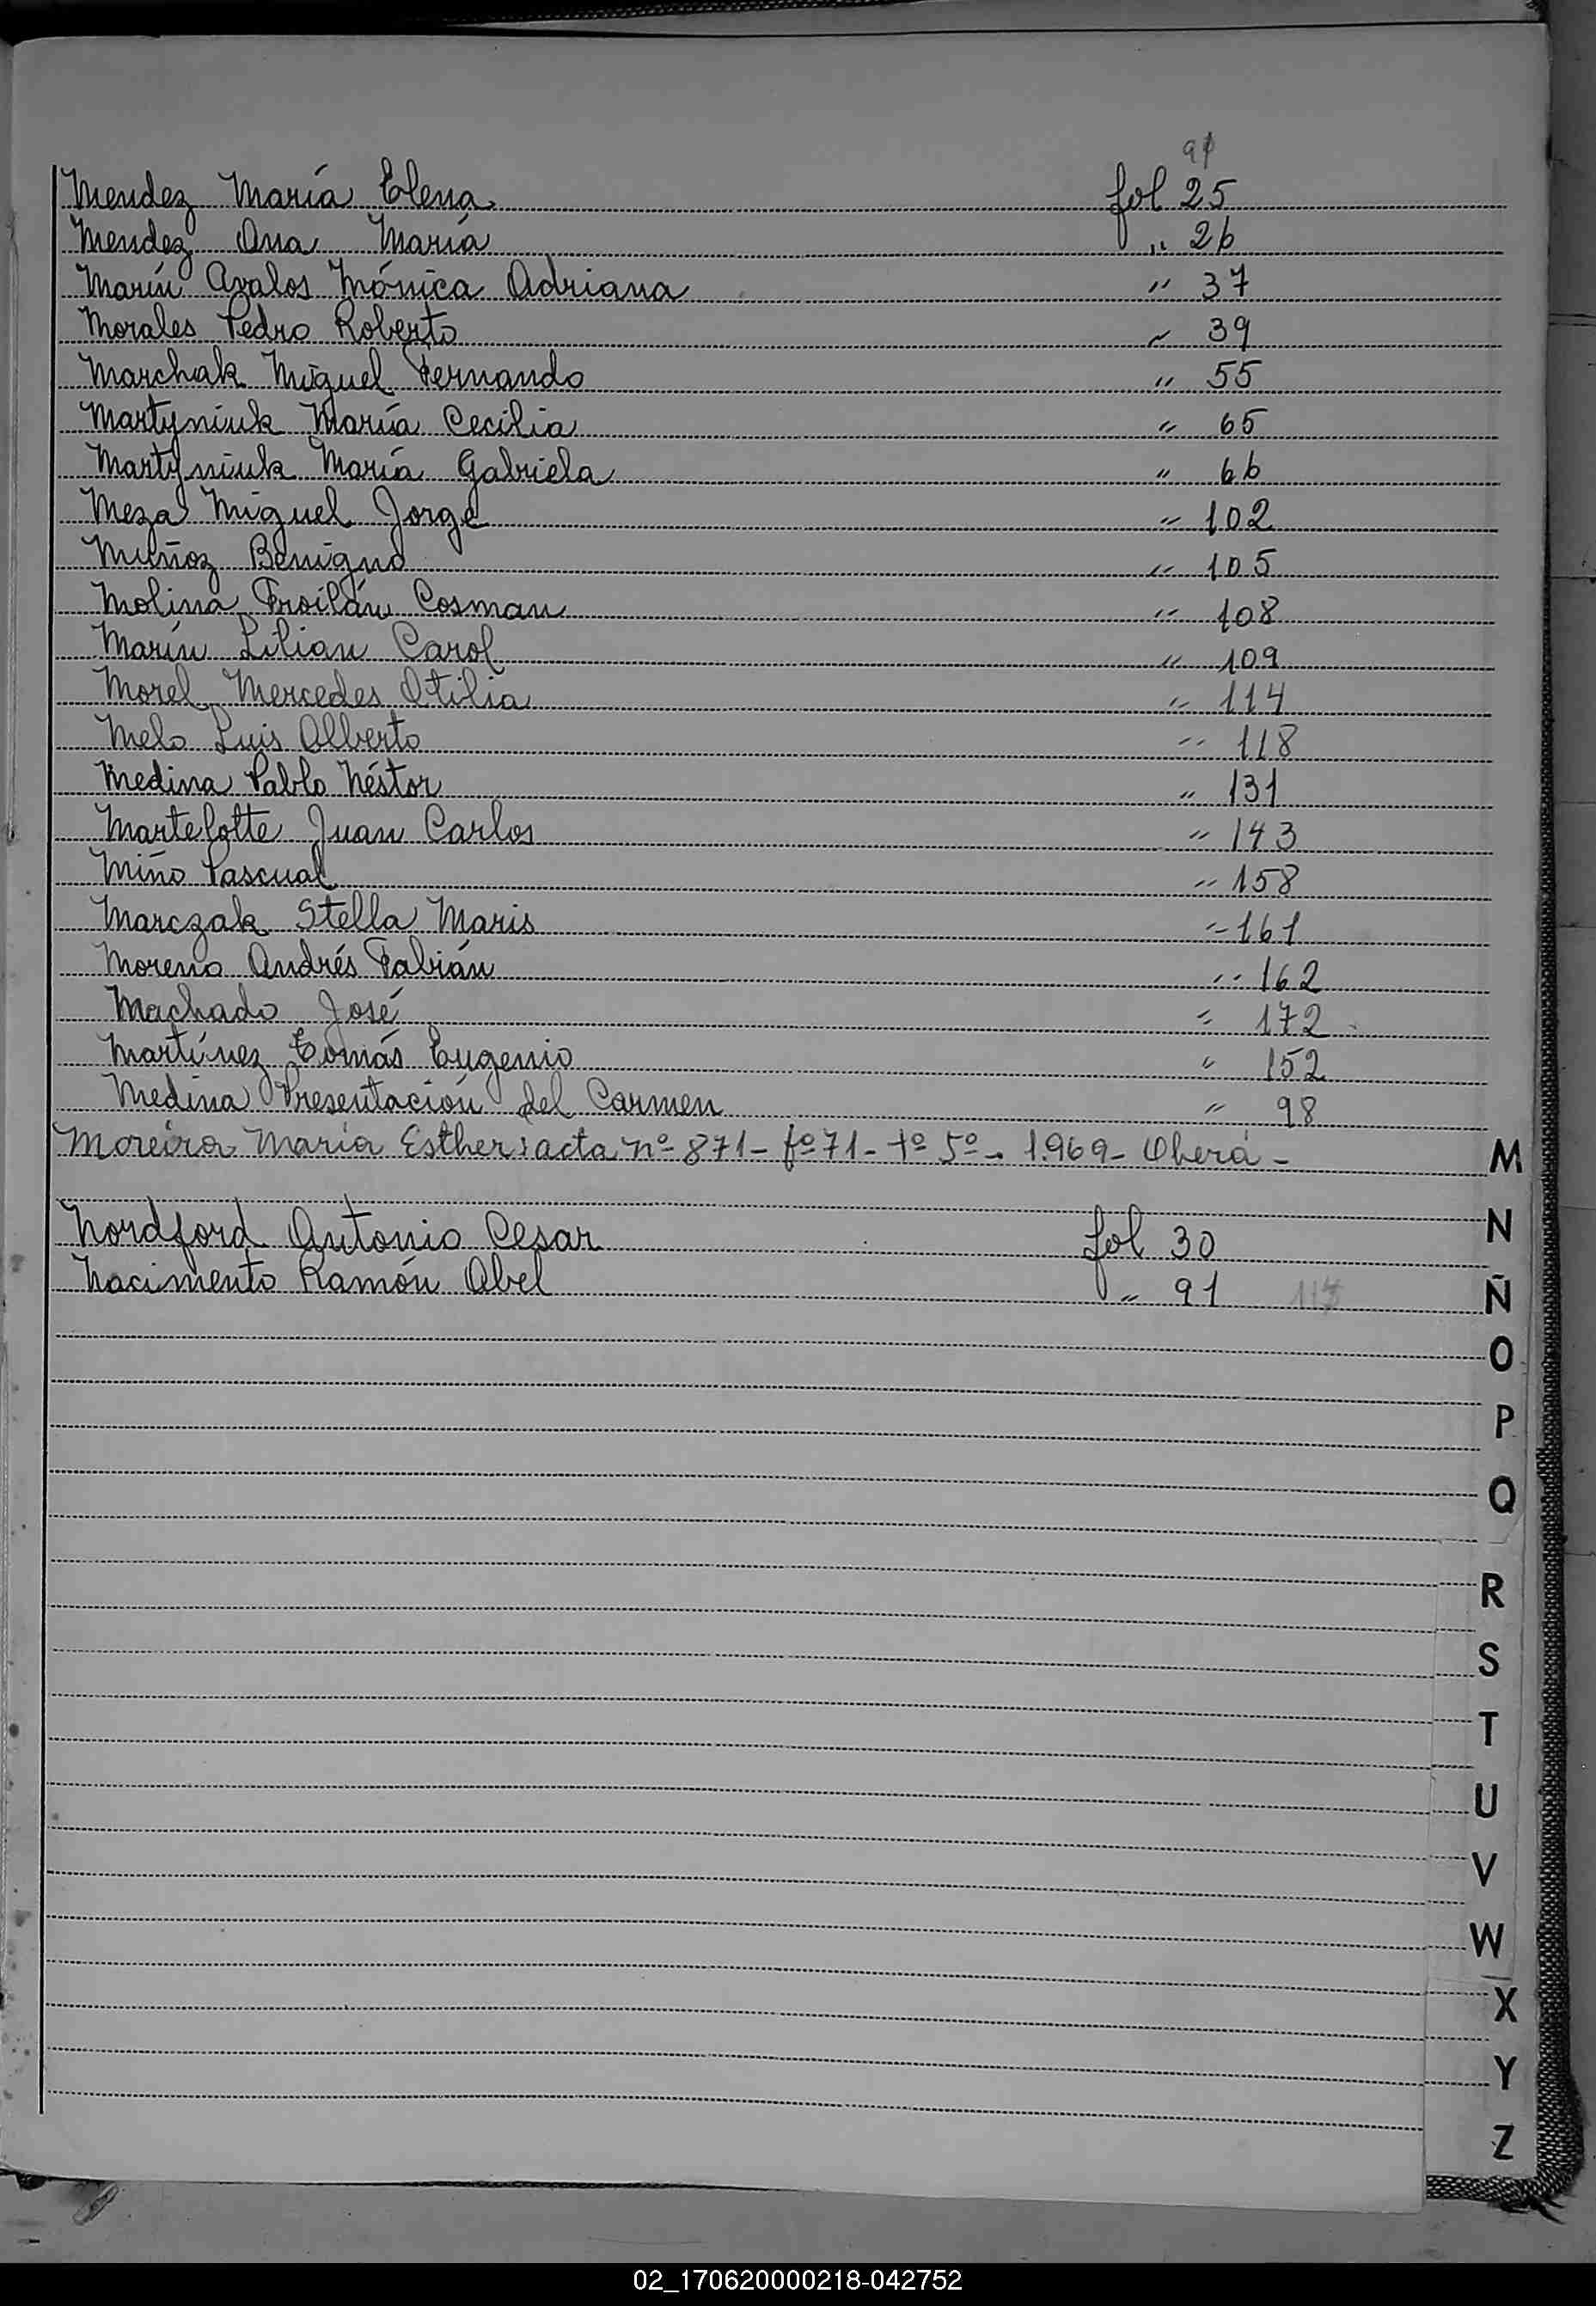 Mendez María Elena fol 25
Mendez Ana María " 26
Marín Avalos Mónica Adriana " 37
Morales Pedro Roberto " 39
Marchak Miguel Fernando " 55
Martyniuk María Cecilia " 65
Martyniuk María Gabriela " 66
Meza Miguel Jorge " 102
Muñoz Benigno " 105
Molina Froilán Cosman " 108
Marín Lilian Carol " 109
Morel Mercedes Otilia " 114
Melo Luis Alberto " 118
Medina Pablo Néstor " 131
Martelotte Juan Carlos " 143
Miño Pascual " 158
Marczak Stella Maris " 161
Moreno Andrés Fabián " 162
Machado José " 172
Martínez Tomás Eugenio " 152
Medina Presentación del Carmen " 98
Moreira María Esther: acta nº 871 - fº 71 - tº 5º - 1.969 - Oberá -
M
Nordford Antonio Cesar fol 30
N
Nacimento Ramón Abel " 91
Ñ
O
P
Q
R
S
T
U
V
W
X
Y
Z
02_170620000218-042752